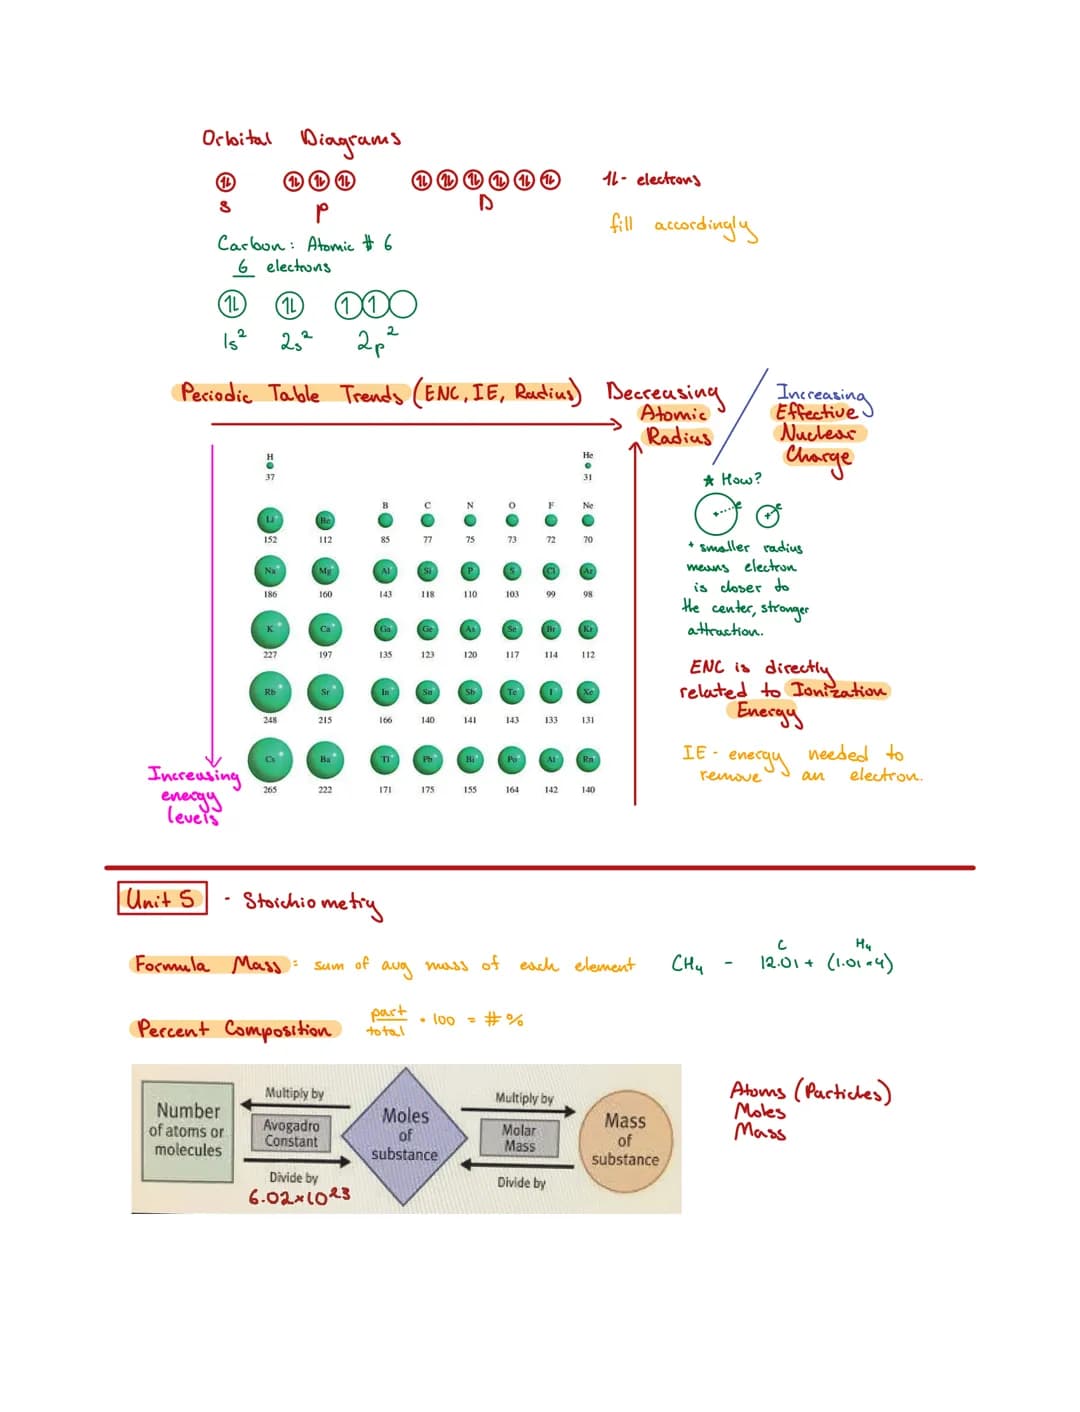 Orbital Diagrams
1L 1L 1L 1L 1L 1L 1L 1L 1L 1L 1L - electrons
s p D
fill accordingly
Carbon: Atomic # 6
6 electrons
1L 1L 1 1
1s² 2s² 2p²
Periodic Table Trends (ENC, IE, Radius)
Decreasing
Atomic
Radius
/
Increasing
Effective
Nuclear
Charge
H He
37 31
B C N O F Ne
Li Be
152 112 85 77 75 73 72 70
Na Mg Al Si P S Cl Ar
186 160 143 118 110 103 99 98
K Ca Ga Ge As Se Br Kr
227 197 135 123 120 117 114 112
Rb Sr In Sn Sb Te I Xe
248 215 166 140 141 143 133 131
Cs Ba Tl Pb Bi Po At Rn
265 222 171 175 155 164 142 140
Increasing
energy
levels
★ How?
+ e
+ e
* smaller radius
means electron
is closer to
the center, stronger
attraction.
ENC is directly
related to Ionization
Energy
IE - energy needed to
remove an electron.
Unit 5 - Stoichiometry
Formula Mass: sum of avg mass of each element
C H₄
CH₄ - 12.01 + (1.01×4)
Percent Composition
part
total
• 100 = #%
Number
of atoms or
molecules
Multiply by
Avogadro
Constant
Divide by
6.02×10²³
Moles
of
substance
Multiply by
Molar
Mass
Divide by
Mass
of
substance
Atoms (Particles)
Moles
Mass